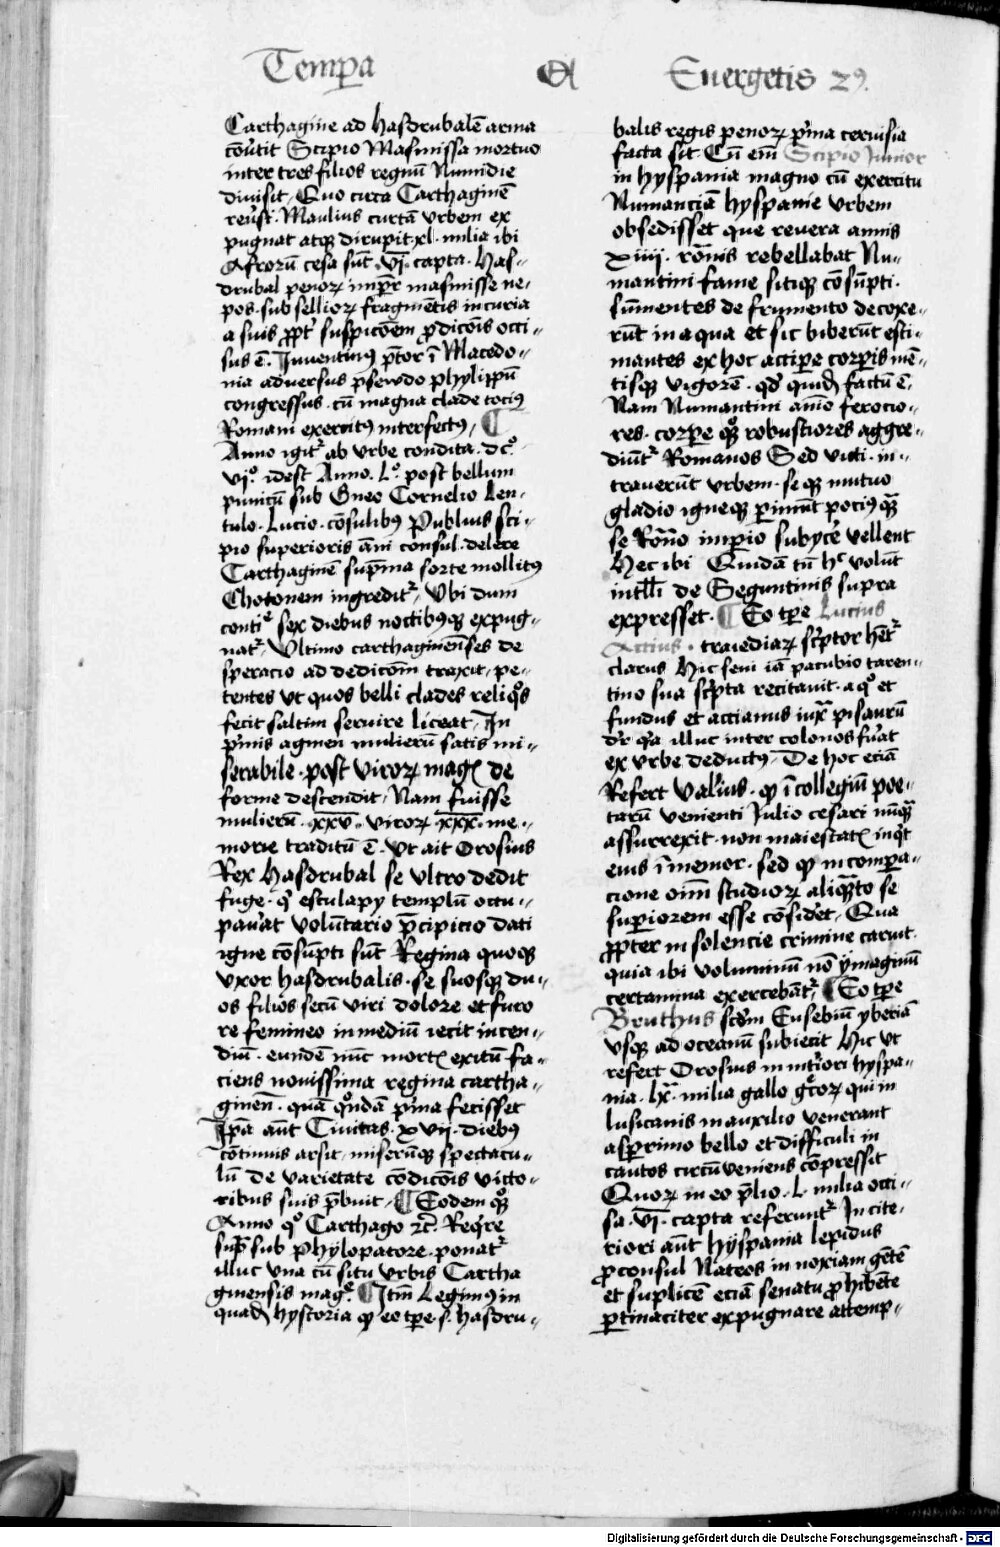 Tempa Et Euergetis 2ꝰ.
Carthagine ad Hasdrubalē arma
cōūtit Scipio Masinissa mortuo
inter tres filios regnū Numidie
diuisit, Quo circa Carthaginē
reus̄i. Maulius curtā vrbem ex
pugnat atqꝫ dirupit. xl. milia ibi
Afrorū cesa sūt. vī. capta. Has-
drubal penoꝝ impr̄ masinisse ne-
pos. sub sellioꝝ fragmētis in curia
a suis ꝓpt̄ suspicōem ꝓdicōis occi-
sus ē. Iuuentinꝰ p̄tor ī Macedo-
nia aduersus psewdo phylippū
congressus. cū magna clade tociꝰ
Romani exercitꝰ interfectꝰ, ¶
Anno igit᷑ ab vrbe condita. dcº.
vjº. idest Anno. Lº. post bellum
punicū sub Gneo Cornelio Len-
tulo. Lucio. cōsulibꝰ Publius sci-
pio superioris āni consul. delere
Carthaginē sup̄ma sorte mollitꝰ
Chotonem ingredit᷑, Vbi dum
contiᵉ sex diebus noctibꝰqꝫ expug-
nat᷑, Vltimo carthaginēses de
speracio ad dedicōm traxit, pe-
tentes vt quos belli clades reliqͦs
fecit saltim seruire liceat, In
p͛mis agmen mulierū satis mi-
serabile. post viroꝝ magꝭ de
forme descendit, Nam fuisse
mulierū. xxv. viroꝝ xxx. me-
morie traditū ē. vt ait Orosius
Rex Hasdrubal se vltro dedit
fuge. qͥ esculapy templū occu-
pau͛at volūtario p̄cipicio dati
igne cōsūpti sūt Regina quoqꝫ
vxor hasdrubalis. se suosqꝫ du-
os filios secū viri dolore et furo
re femineo in mediū iecit incen-
diū. eundē nūc mortꝭ exitū fa-
ciens nouissima regina cartha-
ginēn. quā qͦndā p͛ma fecisset
Ipā aūt Ciuitas. xvij. diebꝰ
cōtinuis arsit, miserūqꝫ spectacu-
lū de varietate cōdicōis victo-
ribus suis p̄buit, ¶ Eodem qͦꝫ
Anno qͦ Carthago ꝛc̄. Reqͥre
sup̄ sub phylopatore. ponat᷑
illuc vna cū situ vrbis Cartha
ginensis magº. ¶ Itm̄ Legimꝰ in
quadā hystoria ꝙ eo tp̄e. s. hasdru-
balis regis penoꝝ p͛ma ceruisia
facta sit. Cū em̄ Scipio Iunior
in hyspania magno cū exercitu
Numanciā hyspanie vrbem
obsedisset que reuera annis
xiiij. rōnis rebellabat Nu-
mantini fame sitiqꝫ cōsūpti.
sūmentes de frumento decoxe-
rūt in aqua et sic biberūt esti-
mantes ex hoc accipe͛ corp̱is mē-
tisqꝫ vigorē. qd̄ quidē factū ē.
Nam Numantini aīo ferocio-
res. corpe͛ qͦꝫ robustiores aggre-
diūt᷑ Romanos Sed victi. in-
trauerūt vrbem. se qꝫ mutuo
gladio igneqꝫ perimūt pociꝰ qͣꝫ
se Rōno imp̱io subyce͛ vellent
Hec ibi Quidā tn̄ hᶜ volūt
intll̄i de Seguntinis supra
expresset. ¶ Eo tp̄e Lucius
Actius. traiediaꝝ scͥptor hēt᷑
clarus Hic seni iā pacubio taren-
tino sua scͥpta recitauit. a qͦ et
fundus et actianus iuxͣ pisaurū
dr̄ qͥa illuc inter colonos fu͛at
ex vrbe deductꝰ, De hoc eciā
Refert valͥius. ꝙ ī collegiū poe-
tarū venienti Iulio cesari nūqͣꝫ
assurrexit. non maiestatꝭ inqͥt
eius īmemor. sed ꝙ in compa-
cione oīm studioꝝ aliqͣto se
sup̱iorem esse cōfide͛t, Qua
ꝓpter in solencie crimine caruit.
quia ibi voluminū nō ymaginū
certamina exercebāt᷑, ¶ Eo tp̄e
Bruthus scd̄m Eusebiū yberiā
vsqꝫ ad oceanū subiecit Hic vt
refert Orosius in inte͛iori hyspa-
nia. lx͞. milia gallo gͤcoꝝ qui in
lusicanis in auxilio venerant
asp̱rimo bello et difficuli in
cautos circūueniens cōpressit
Quoꝝ in eo p̄lio. L. milia occi-
sa. vī. capta referunt᷑ In cite-
riori aūt hyspania lepidus
ꝓconsul Nateos in noxiam gētē
et suplicē eciā senatu ꝓhibēte
p̱tinaciter expugnare attemp-
Digitalisierung gefördert durch die Deutsche Forschungsgemeinschaft - DFG